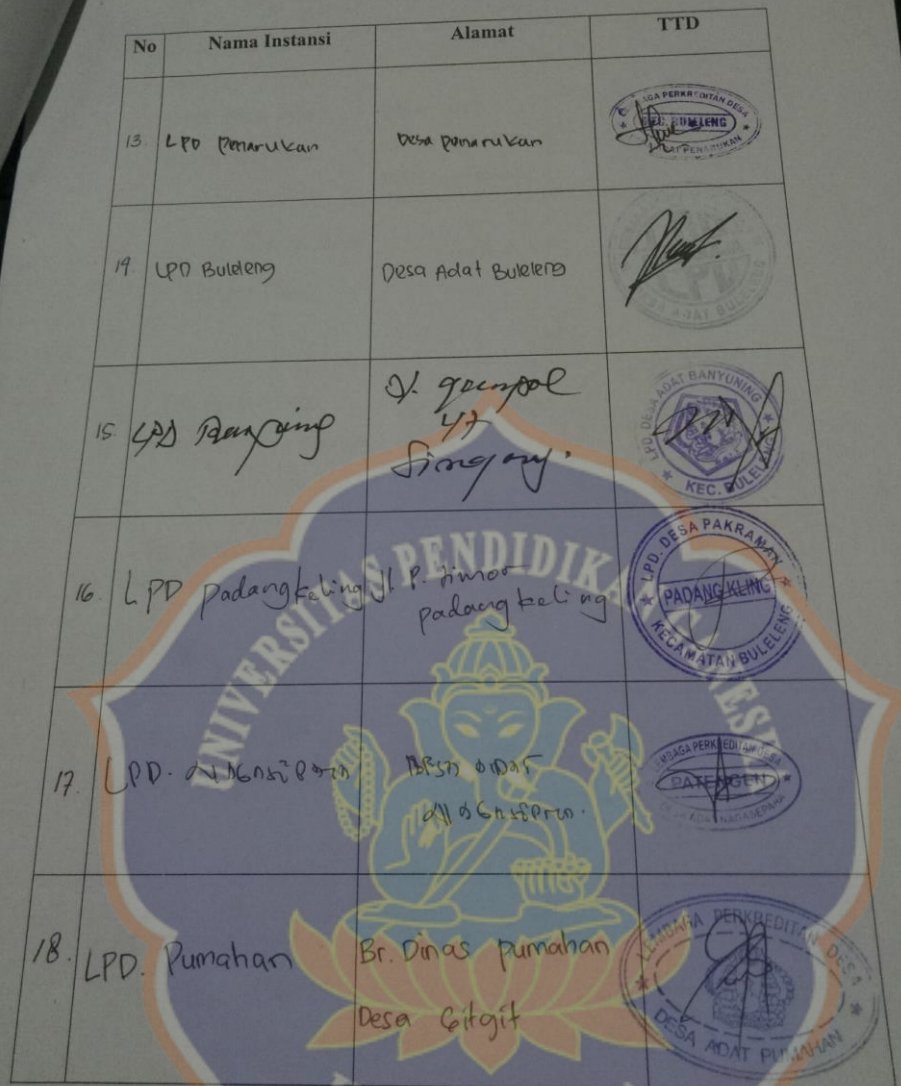 No Nama Instansi Alamat TTD
13. LPD Penarukan Desa Penarukan
AGA PERKREDITAN DESA
KEC. BULELENG
AT PENARUKAN
14. LPD Buleleng Desa Adat Buleleng
LPD
DESA ADAT BULELENG
15. LPD Banyuning Jl. gempol
47
Singaraja.
LPD. DESA ADAT BANYUNING
KEC. BULELENG
16. LPD Padangkeling Jl. P. timor
padang keling
LPD. DESA PAKRAMAN
PADANG KLING
KECAMATAN BULELENG
17. LPD.
LEMBAGA PERKREDITAN DESA
PATENGEN
DESA ADAT NAGASEPAHA
18. LPD. Pumahan Br. Dinas pumahan
Desa Gitgit
LEMBAGA PERKREDITAN DESA
DESA ADAT PUMAHAN
UNIVERSITAS PENDIDIKAN GANESHA